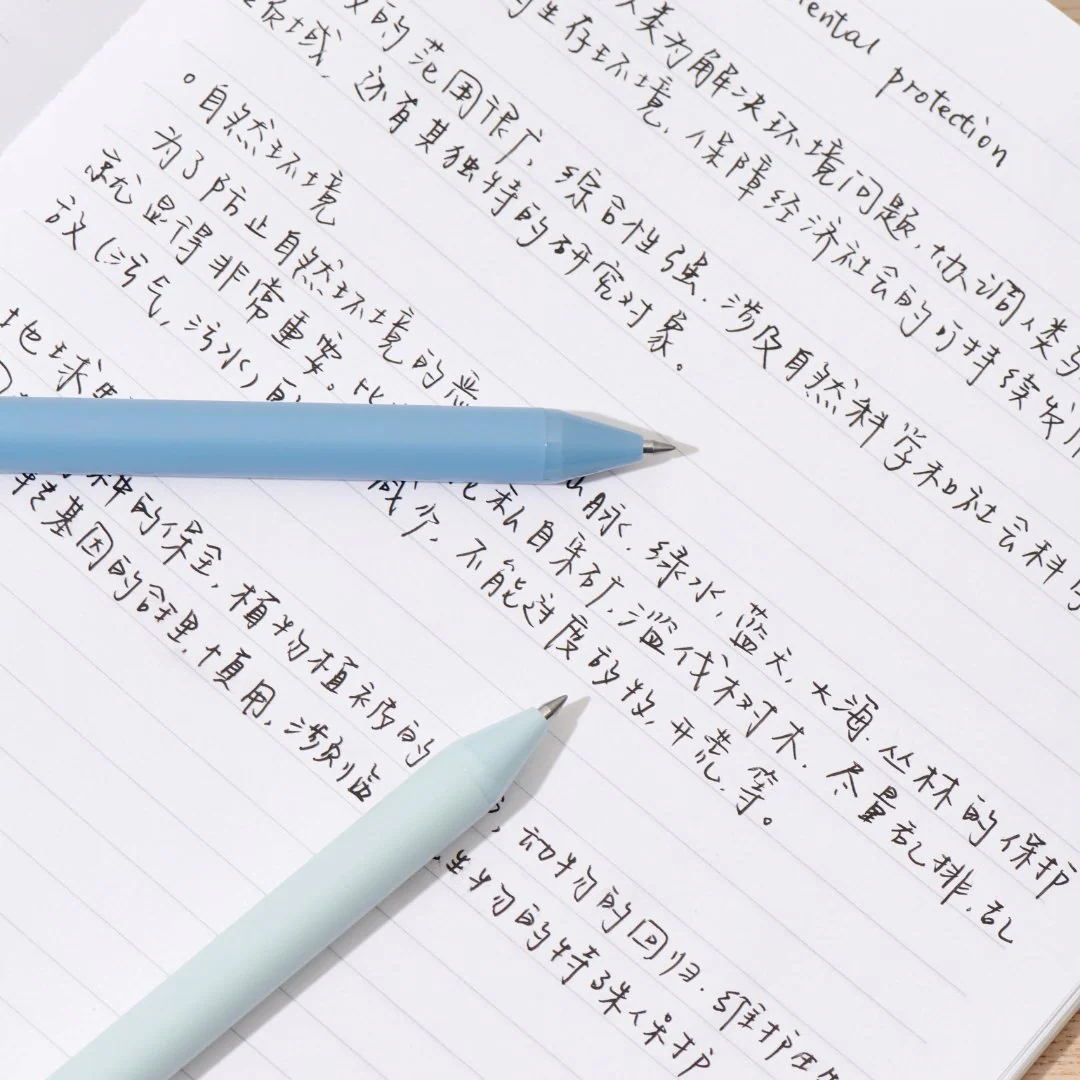 ental protection
人类为解决环境问题,协调人类与
的生存环境,保障经济社会的可持续发展
的范围很广,综合性强,涉及自然科学和社会科学
领域,还有其独特的研究对象。
。自然环境
为了防止自然环境的恶
脉,绿水,蓝天,大海,丛林的保护
就显得非常重要。
私自采矿,滥伐树木,尽量乱排,乱
放(污气,污水)
减少,不能过度放牧,开荒,等。
地球
种的保全,植物植被的
动物的回归,维护
转基因的合理,慎用,涉及临
生物的特殊保护